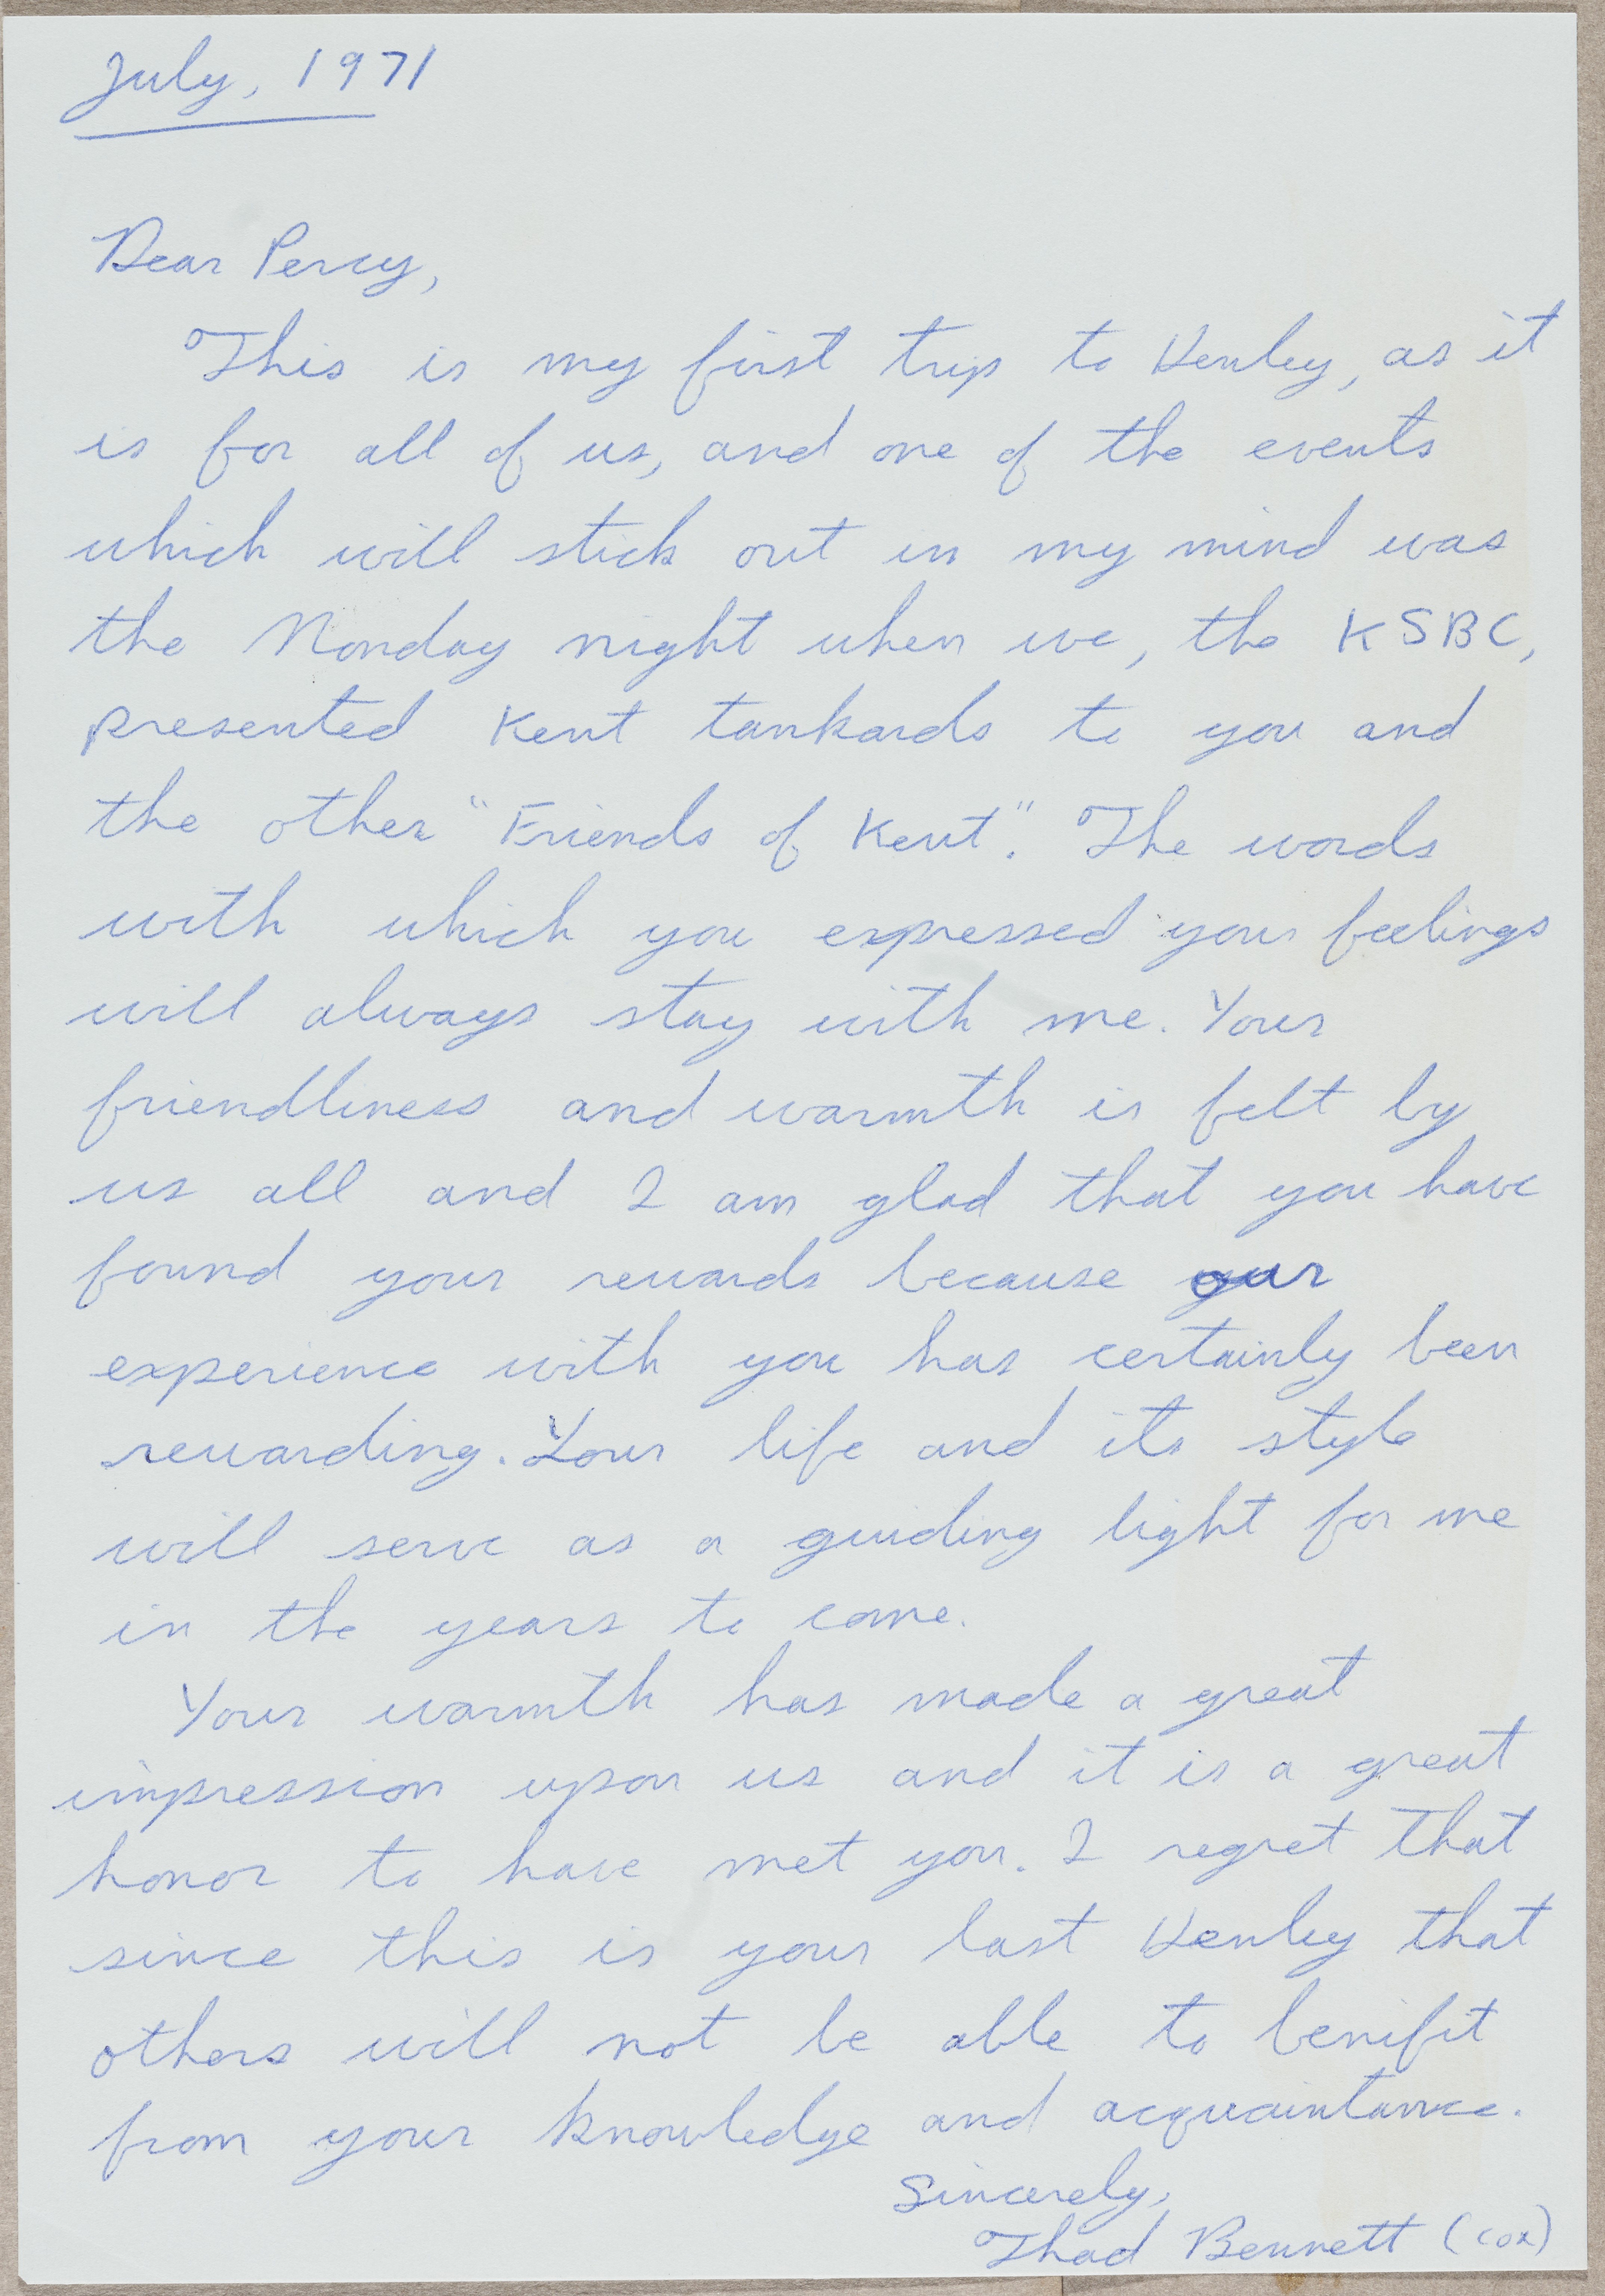 July, 1971
Dear Percy,
This is my first trip to Henley, as it
is for all of us, and one of the events
which will stick out in my mind was
the Monday night when we, the KSBC,
presented Kent tankards to you and
the other "Friends of Kent". The words
with which you expressed your feelings
will always stay with me. Your
friendliness and warmth is felt by
us all and I am glad that you have
found your rewards because our
experience with you has certainly been
rewarding. Your life and its style
will serve as a guiding light for me
in the years to come.
Your warmth has made a great
impression upon us and it is a great
honor to have met you. I regret that
since this is your last Henley that
others will not be able to benifit
from your knowledge and acquaintance.
Sincerely,
Thad Bennett (cox)